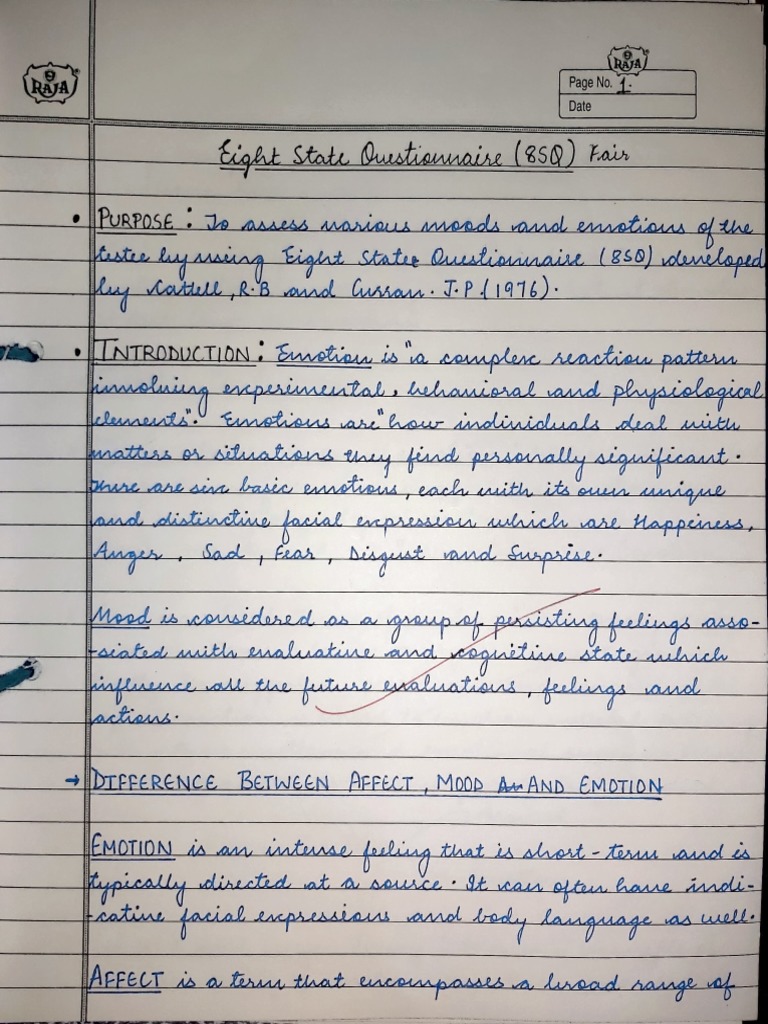 RAJA
RAJA
Page No. 1.
Date
Eight State Questionnaire (8SQ) Fair
• PURPOSE : To assess various moods and emotions of the
testee by using Eight State Questionnaire (8SQ) developed
by Cattell, R.B and Curran. J.P. (1976).
• INTRODUCTION : Emotion is "a complex reaction pattern
involving experimental, behavioral and physiological
elements". Emotions are "how individuals deal with
matters or situations they find personally significant.
There are six basic emotions, each with its own unique
and distinctive facial expression which are Happiness,
Anger, Sad, Fear, Disgust and Surprise.
Mood is considered as a group of persisting feelings asso-
-siated with evaluative and cognitive state which
influence all the future evaluations, feelings and
actions.
→ DIFFERENCE BETWEEN AFFECT, MOOD AND EMOTION
EMOTION is an intense feeling that is short-term and is
typically directed at a source. It can often have indi-
-cative facial expressions and body language as well.
AFFECT is a term that encompasses a broad range of